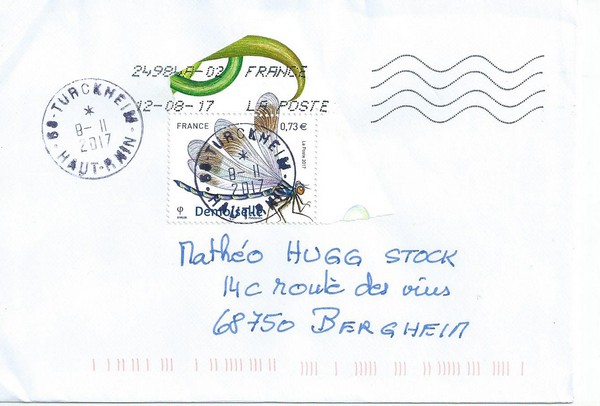 24984A-02 FRANCE
12-08-17 LA POSTE
68-TURCKHEIM
*
8-11
2017
HAUT-RHIN
FRANCE 0,73 €
La Poste 2017
68-TURCKHEIM
8-11
2017
HAUT-RHIN
Demoiselle
Mathéo HUGG STOCK
14c route des vins
68750 BERGHEIM